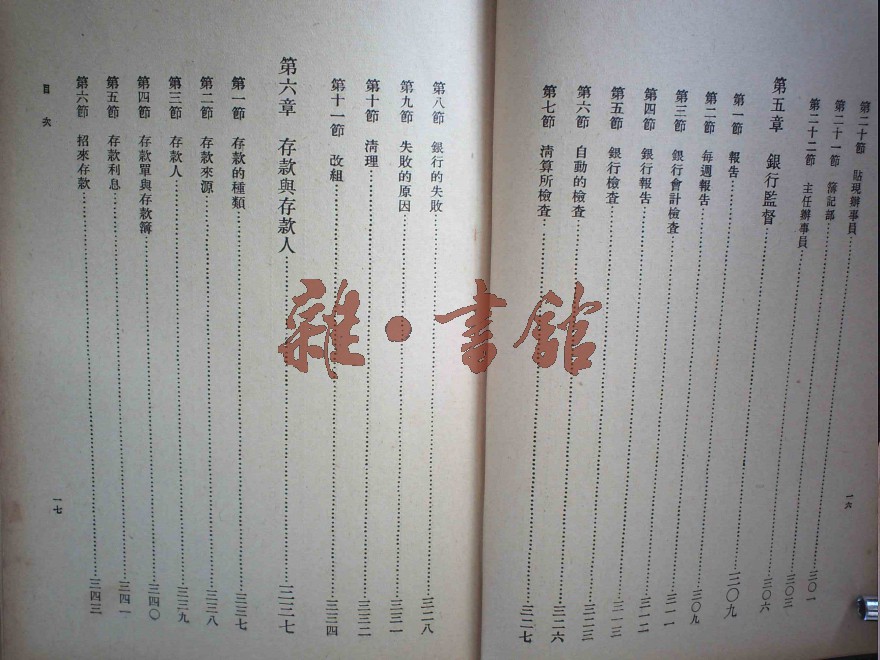 第二十節 貼現辦事員……三〇一
第二十一節 簿記部……三〇三
第二十二節 主任辦事員……三〇六
第五章 銀行監督……三〇九
第一節 報告……三〇九
第二節 每週報告……三一一
第三節 銀行會計檢查……三一二
第四節 銀行報告……三一三
第五節 銀行檢查……三二三
第六節 自動的檢查……三二六
第七節 清算所檢查……三二七
一六
第八節 銀行的失敗……三二八
第九節 失敗的原因……三三一
第十節 清理……三三二
第十一節 改組……三三四
第六章 存款與存款人……三三七
第一節 存款的種類……三三七
第二節 存款來源……三三八
第三節 存款人……三三九
第四節 存款單與存款簿……三四〇
第五節 存款利息……三四一
第六節 招來存款……三四三
目次
一七
雜·書館